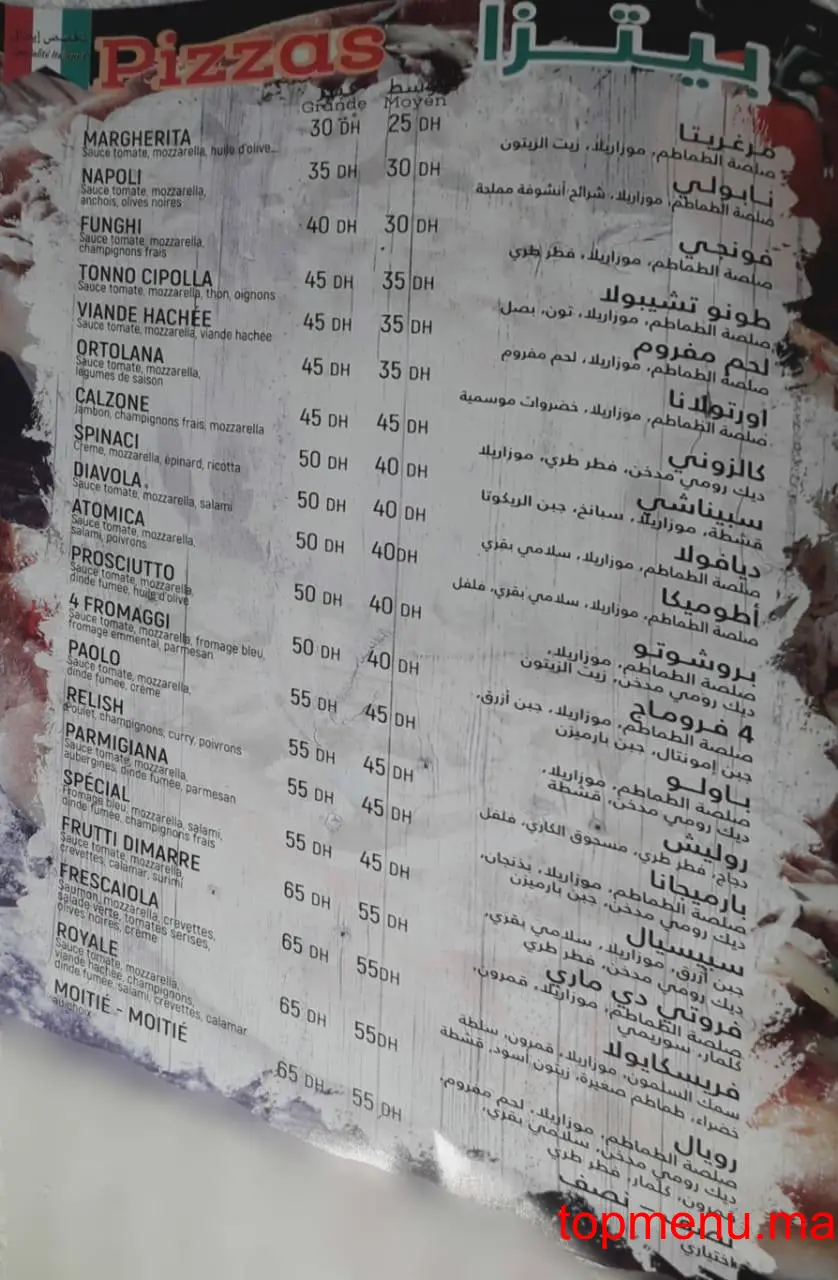 Spécialité Italienne
Pizzas
بيتزا
كبير وسط
Grande Moyen
MARGHERITA 30 DH 25 DH مرغريتا
Sauce tomate, mozzarella, huile d'olive... صلصة الطماطم، موزاريلا، زيت الزيتون
NAPOLI 35 DH 30 DH نابولي
Sauce tomate, mozzarella, صلصة الطماطم، موزاريلا، شرائح أنشوفة مملحة
anchois, olives noires
FUNGHI 40 DH 30 DH فونجي
Sauce tomate, mozzarella, صلصة الطماطم، موزاريلا، فطر طري
champignons frais
TONNO CIPOLLA 45 DH 35 DH طونو تشيبولا
Sauce tomate, mozzarella, thon, oignons صلصة الطماطم، موزاريلا، تون، بصل
VIANDE HACHÉE 45 DH 35 DH لحم مفروم
Sauce tomate, mozzarella, viande hachée صلصة الطماطم، موزاريلا، لحم مفروم
ORTOLANA 45 DH 35 DH اورتولانا
Sauce tomate, mozzarella, صلصة الطماطم، موزاريلا، خضروات موسمية
légumes de saison
CALZONE 45 DH 45 DH كالزوني
Jambon, champignons frais, mozzarella ديك رومي مدخن، فطر طري، موزاريلا
SPINACI 50 DH 40 DH سبيناشي
Crème, mozzarella, épinard, ricotta قشطة، موزاريلا، سبانخ، جبن الريكوتا
DIAVOLA 50 DH 40 DH ديافولا
Sauce tomate, mozzarella, salami صلصة الطماطم، موزاريلا، سلامي بقري
ATOMICA 50 DH 40DH أطوميكا
Sauce tomate, mozzarella, صلصة الطماطم، موزاريلا، سلامي بقري، فلفل
salami, poivrons
PROSCIUTTO 50 DH 40 DH بروشوتو
Sauce tomate, mozzarella, صلصة الطماطم، موزاريلا،
dinde fumée, huile d'olive ديك رومي مدخن، زيت الزيتون
4 FROMAGGI 50 DH 40 DH 4 فروماج
Sauce tomate, mozzarella, fromage bleu, صلصة الطماطم، موزاريلا، جبن أزرق،
fromage emmental, parmesan جبن إمونتال، جبن بارميزن
PAOLO 55 DH 45 DH باولو
Sauce tomate, mozzarella, صلصة الطماطم، موزاريلا،
dinde fumée, crème ديك رومي مدخن، قشطة
RELISH 55 DH 45 DH روليش
Poulet, champignons, curry, poivrons دجاج، فطر طري، مسحوق الكاري، فلفل
PARMIGIANA 55 DH 45 DH بارميجانا
Sauce tomate, mozzarella, صلصة الطماطم، موزاريلا، بذنجان،
aubergines, dinde fumée, parmesan ديك رومي مدخن، جبن بارميزن
SPÉCIAL 55 DH 45 DH سبيسيال
Fromage bleu, mozzarella, salami, جبن أزرق، موزاريلا، سلامي بقري،
dinde fumée, champignons frais ديك رومي مدخن، فطر طري
FRUTTI DIMARRE 65 DH 55 DH فروتي دي ماري
Sauce tomate, mozzarella, صلصة الطماطم، موزاريلا، قمرون،
crevettes, calamar, surimi كلمار، سوريمي
FRESCAIOLA 65 DH 55DH فريسكايولا
Saumon, mozzarella, crevettes, سمك السلمون، موزاريلا، قمرون، سلطة
salade verte, tomates serises, خضراء، طماطم صغيرة، زيتون أسود، قشطة
olives noires, crème
ROYALE 65 DH 55DH رويال
Sauce tomate, mozzarella, صلصة الطماطم، موزاريلا، لحم مفروم،
viande hachée, champignons, ديك رومي مدخن، سلامي بقري،
dinde fumée, salami, crevettes, calamar قمرون، كلمار، فطر طري
MOITIÉ - MOITIÉ 65 DH 55 DH نصف - نصف
au choix اختياري
topmenu.ma